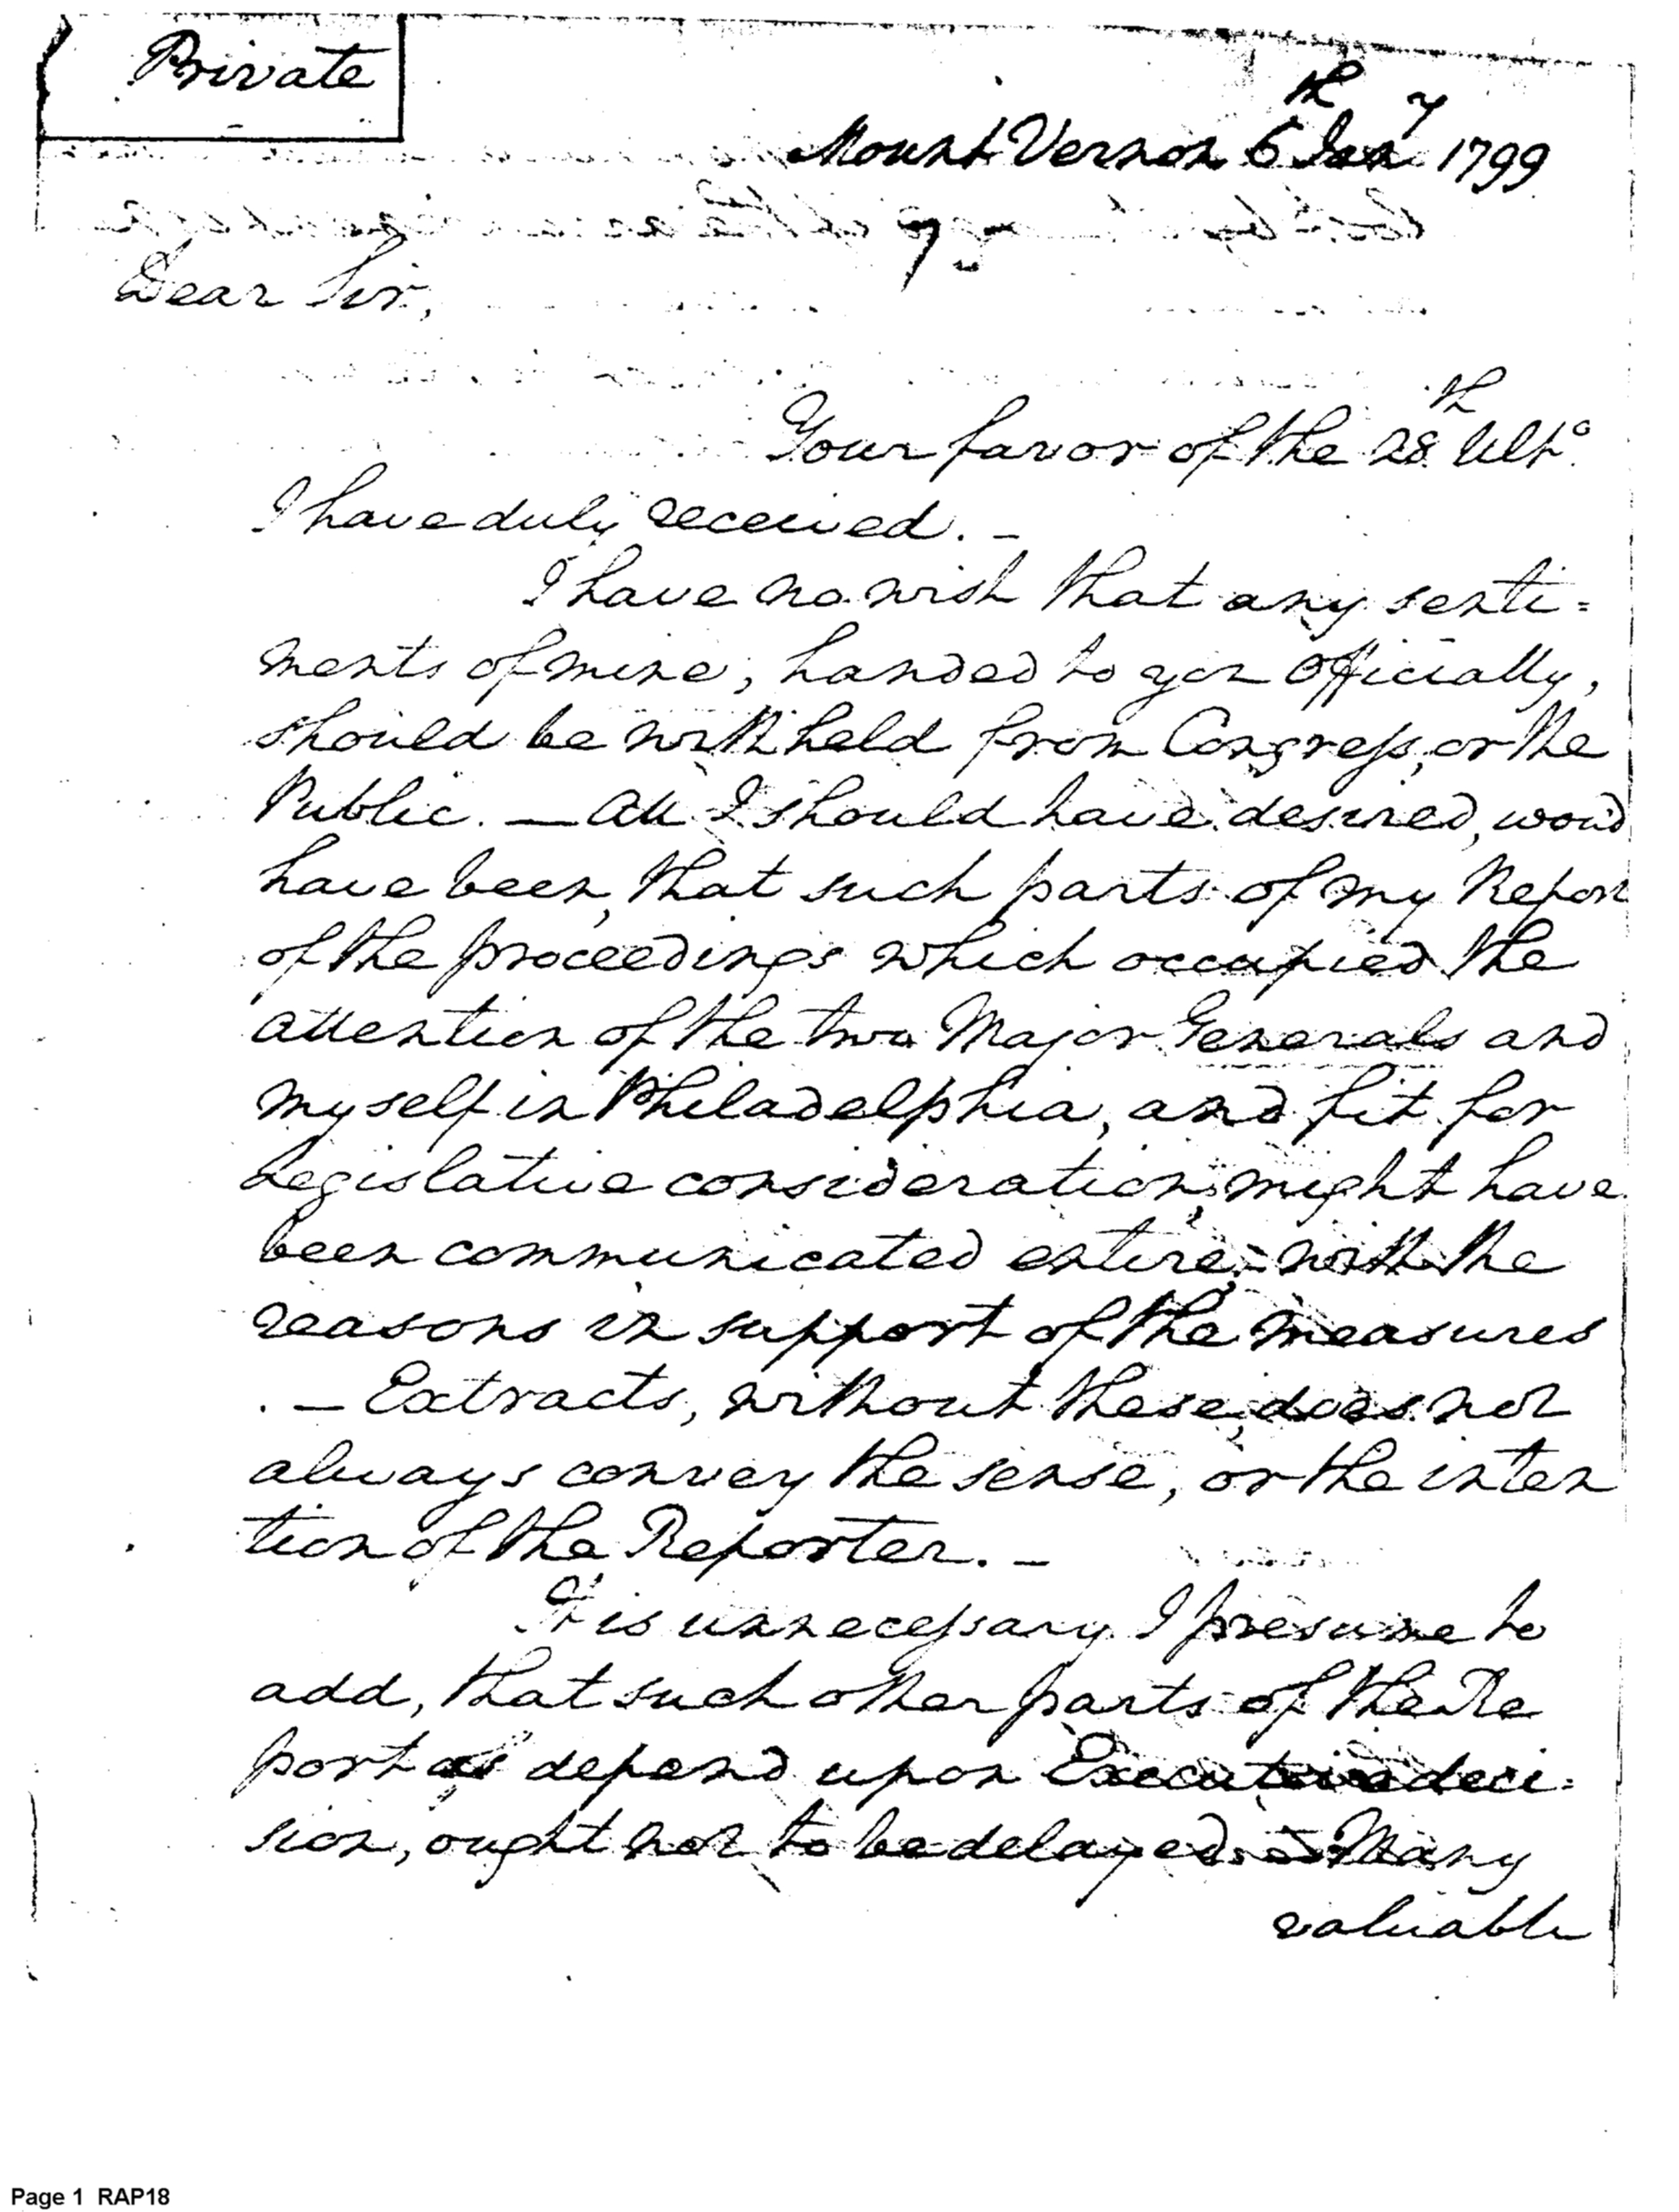 Private
Mount Vernon 6th Jany 1799
Dear Sir,
Your favor of the 28th Ulto.
I have duly received. –
I have no wish that any senti=
ments of mine, handed to you Officially,
should be withheld from Congress, or the
Public. – All I should have desired, wou'd
have been, that such parts of my Report
of the proceedings which occupied the
attention of the two Major Generals and
myself in Philadelphia, and fit for
Legislative consideration, might have
been communicated entire; – with the
reasons in support of the measures
. – Extracts, without these, does not
always convey the sense, or the inten
tion of the Reporter. –
It is unnecessary I presume to
add, that such other parts of the Re
port as depend upon Executive deci=
sion, ought not to be delayed. – Many
valuable
Page 1 RAP18